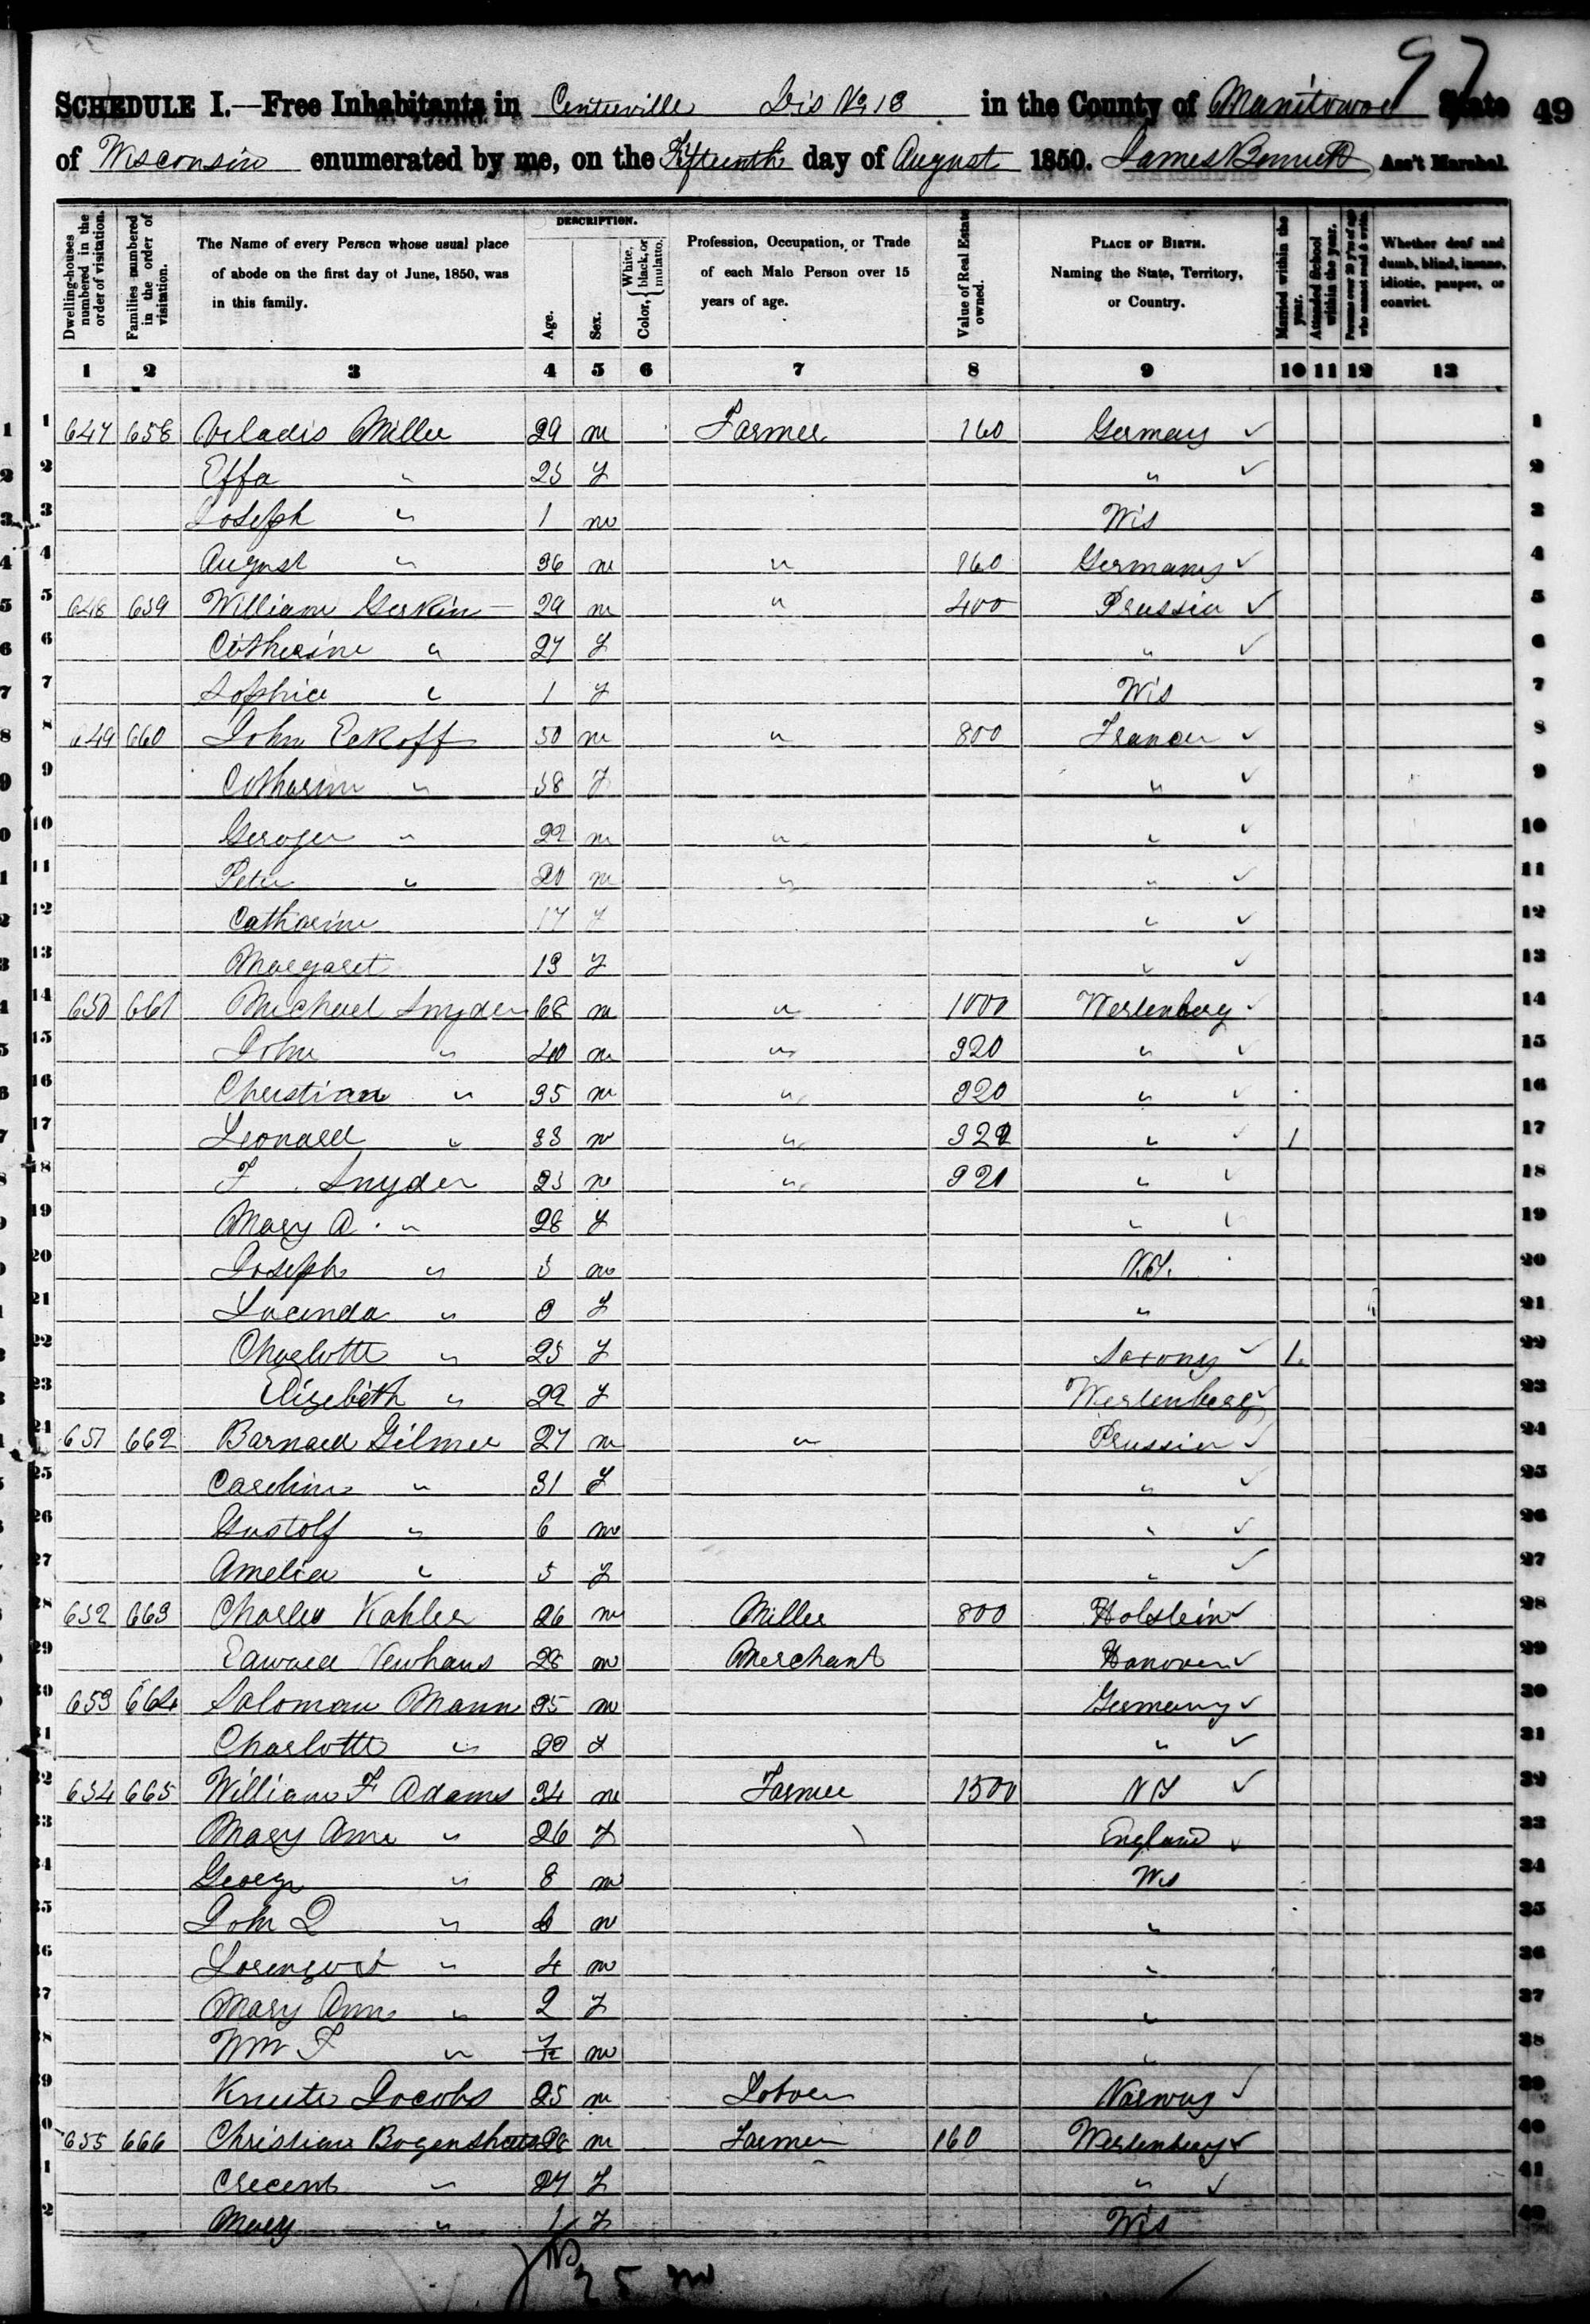 97
SCHEDULE I.—Free Inhabitants in Centerville Dis No 18 in the County of Manitowoc State 49
of Wisconsin enumerated by me, on the Fifteenth day of August 1850. James Bennett Ass't Marshal.
Dwelling-houses numbered in the order of visitation.
Families numbered in the order of visitation.
The Name of every Person whose usual place of abode on the first day of June, 1850, was in this family.
DESCRIPTION.
Age.
Sex.
Color, { White, black, or mulatto.
Profession, Occupation, or Trade of each Male Person over 15 years of age.
Value of Real Estate owned.
PLACE OF BIRTH. Naming the State, Territory, or Country.
Married within the year.
Attended School within the year.
Persons over 20 y'rs of age who cannot read & write.
Whether deaf and dumb, blind, insane, idiotic, pauper, or convict.
1 2 3 4 5 6 7 8 9 10 11 12 13
1 647 658 Miller 29 m Farmer 160 Germany ✓ 1
2 Effa " 25 f " ✓ 2
3 Joseph " 1 m Wis 3
4 August " 36 m " 160 Germany ✓ 4
5 648 659 William Gerkin 29 m " 400 Prussia ✓ 5
6 Catherine " 27 f " ✓ 6
7 Sophia " 1 f Wis 7
8 649 660 John Eckoff 50 m " 800 France ✓ 8
9 Catharine " 58 f " ✓ 9
10 Geroge " 22 m " " ✓ 10
11 Peter " 20 m " " ✓ 11
12 Catharine 17 f " ✓ 12
13 Margaret 13 f " ✓ 13
14 650 661 Michael Snyder 68 m " 1000 Wertenberg ✓ 14
15 John " 40 m " 320 " ✓ 15
16 Christian " 35 m " 320 " ✓ 16
17 Leonard " 33 m " " ✓ 1 17
18 F. Snyder 23 m " " ✓ 18
19 Mary A. " 28 f " ✓ 19
20 Joseph " 5 m N.Y. 20
21 Lucinda " f " 21
22 Charlotte " 25 f Saxony ✓ 1 22
23 Elizebeth " 22 f Wertenberg ✓ 23
24 651 662 Barnard Gilmer 27 m " Prussia ✓ 24
25 Caroline " 31 f " ✓ 25
26 Gustolf " 6 m " ✓ 26
27 Amelia " 5 f " ✓ 27
28 652 663 Charles Kahler 26 m Miller 800 Holstein ✓ 28
29 Edward Newhaus 28 m Merchant Hanover ✓ 29
30 653 664 Saloman Mann 25 m Germany ✓ 30
31 Charlotte " 22 f " ✓ 31
32 654 665 William F Adams 34 m Farmer 1500 N Y ✓ 32
33 Mary Ann " 26 f England ✓ 33
34 George " 8 m Wis 34
35 John Q " 6 m " 35
36 " 4 m " 36
37 Mary Ann " 2 f " 37
38 Wm F " 7/12 m " 38
39 Knute Jacobs 25 m Labor Norway ✓ 39
40 655 666 Christian Bogenshutz 28 m Farmer 160 Wertenberg ✓ 40
41 Crecent " 27 f " ✓ 41
42 Mary " 1 f Wis 42
25 m